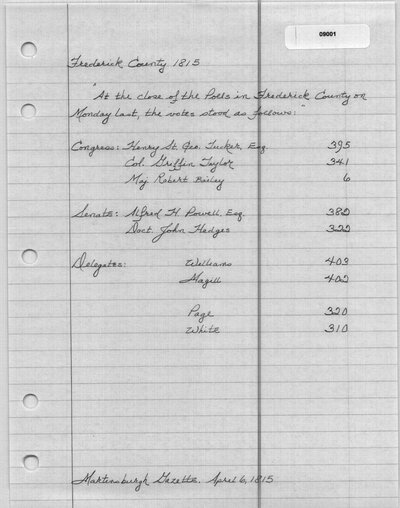 09001
Frederick County 1815
"At the close of the Polls in Frederick County on
Monday last, the votes stood as follows:"
Congress: Henry St. Geo. Tucker, Esq. 395
Col. Griffin Taylor 341
Maj. Robert Bailey 6
Senate: Alfred H. Powell, Esq. 382
Doct. John Hedges 322
Delegates: Williams 403
Magill 402
Page 320
White 310
Martinsburgh Gazette, April 6, 1815